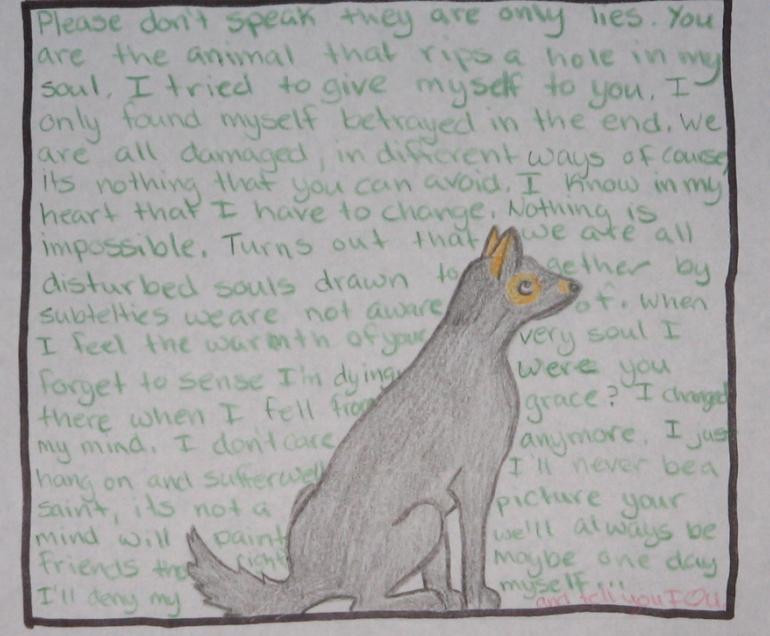 Please don't speak they are only lies. You
are the animal that rips a hole in my
soul. I tried to give myself to you. I
only found myself betrayed in the end. We
are all damaged, in different ways of course,
its nothing that you can avoid. I know in my
heart that I have to change. Nothing is
impossible. Turns out that we are all
disturbed souls drawn to gether by
subtelties we are not aware of. When
I feel the warmth of your very soul I
forget to sense I'm dying. Were you
there when I fell from grace? I changed
my mind. I don't care anymore. I just
hang on and suffer well I'll never be a
saint, its not a picture your
mind will paint we'll always be
friends right maybe one day
I'll deny my myself...
and tell you I O U